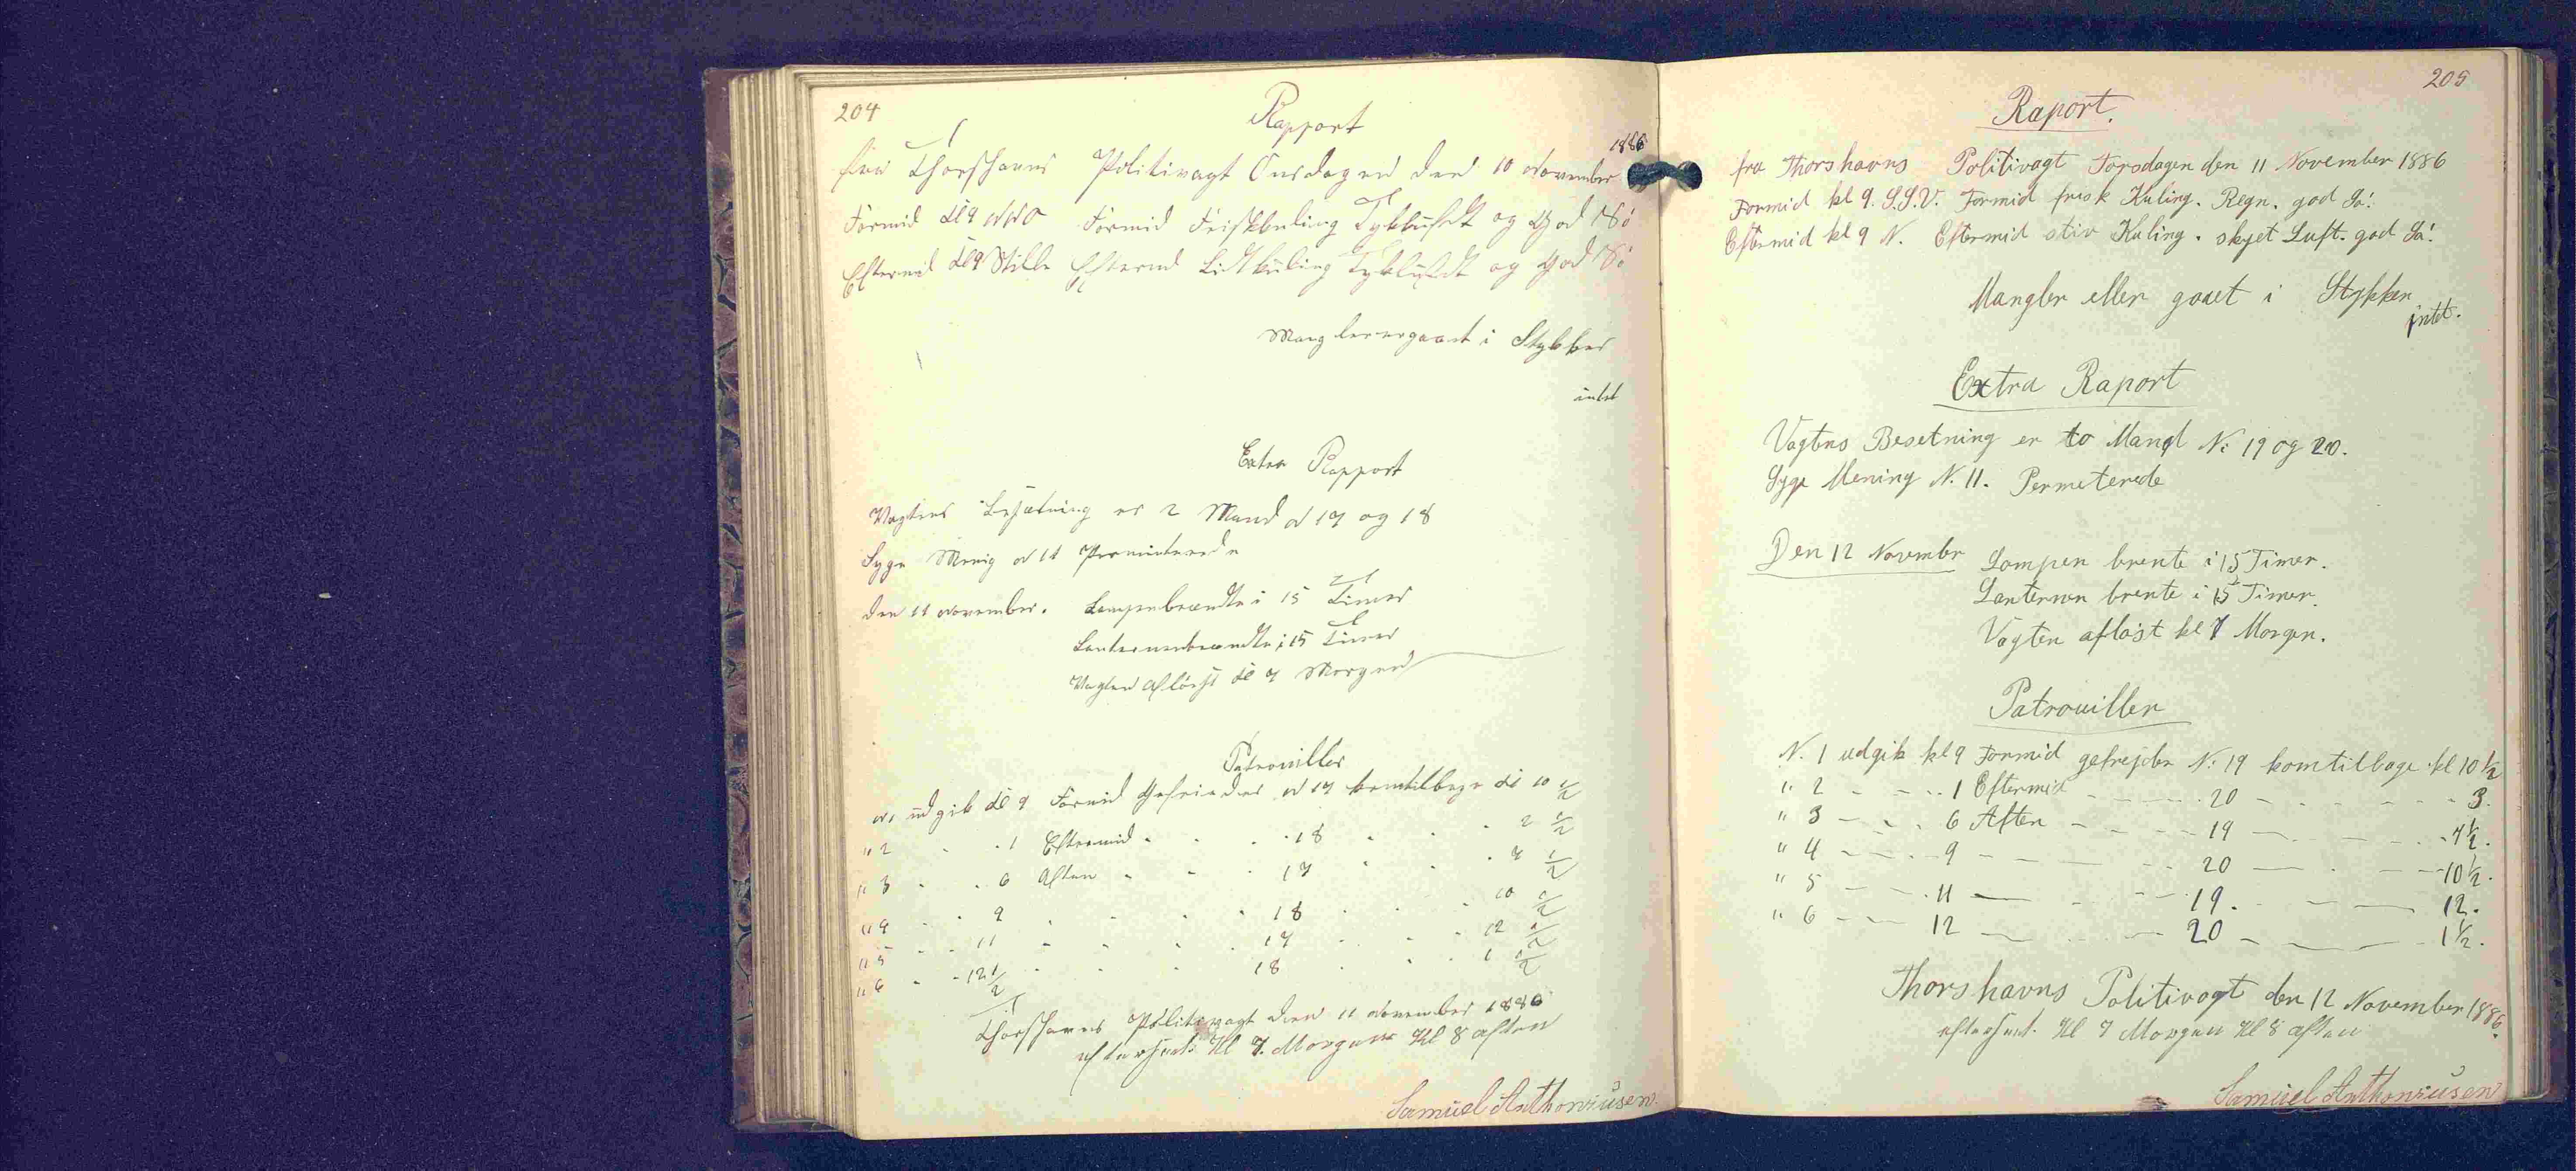 204
Rapport
1886
fra Thorshavns Politivagt Onsdagen den 10 November
Formid kl 9 NNO Formid Friskkuling Tykluft og God Sö
Eftermid kl 9 Stille Eftermd Lidtkuling Tykluft og God Sö
Manglerergaaet i Stykker
intet
Extra Rapport
Vagtens Besætning er 2 Mand N 17 og 18
Syge Menig N 11 Permiterede
den 11 November. Lampenbrændte i 15 Timer
Lanternenbrændte i 15 Timer
Vagten aflöist kl 7 Morgen
Patrouiller
N 1 udgik kl 9 Formid Gefreider N 17 komtilbage kl 10 1/2
" 2 - - 1 Eftermid - - - 18 - - - 2 1/2
" 3 - - 6 Aften - - - 17 - - - 7 1/2
" 4 - - 9 - - - 18 - - - 10 1/2
" 5 - - 11 - - - 17 - - - 12 1/2
" 6 - - 12 1/2 - - - 18 - - - 1 1/2
Thorshavns Politivagt den 11 November 1886
efterseet Kl 7. Morgen Kl 8 aften
Samuel Anthoniusen
205
Raport.
fra Thorshavns Politivagt Torsdagen den 11 November 1886
Formid kl 9. S.S.V. Formid frisk Kuling. Regn. god Sö.
Eftermid kl 9 N. Eftermid stiv Kuling. skyet Luft. god Sö.
Mangler eller gaaet i Stykker
intet.
Extra Raport
Vagtens Besetning er to Mand N: 19 og 20.
Syge Mening N. 11. Permeterede
Den 12 Novembr Lampen brente i 15 Timer.
Lanternen brente i 15 Timer.
Vagten afløst kl 7 Morgen.
Patrouiller
N. 1 udgik kl 9 Formid gefrejder N: 19 komtilbage kl 10 1/2
" 2 - - - 1 Eftermid - - - 20 - - - 3.
" 3 - - - 6 Aften - - - 19 - - - 7 1/2.
" 4 - - - 9 - - - 20 - - - 10 1/2.
" 5 - - - 11 - - - 19. - - - 12.
" 6 - - - 12 - - - 20 - - - 1 1/2.
Thorshavns Politivagt den 12 November 1886.
efterseet. Kl 7 Morgen Kl 8 aften
Samuel Anthoniusen